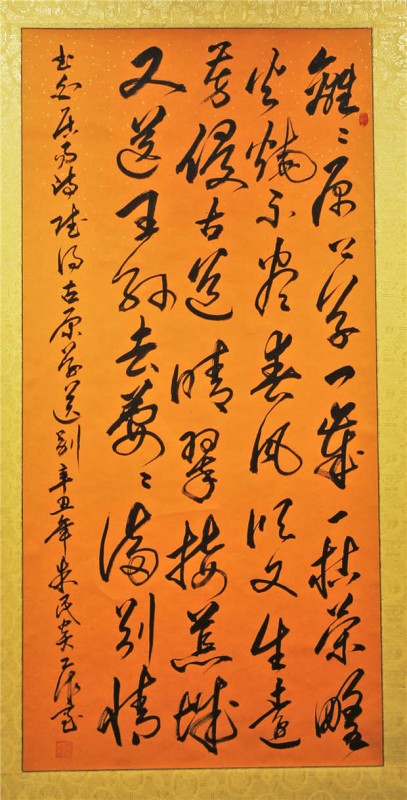 離〻原上草一歲一枯榮野
火燒不盡春風吹又生遠
芳侵古道晴翠接荒城
又送王孫去萋〻滿別情
书白居易詩賦得古原草送别辛丑年